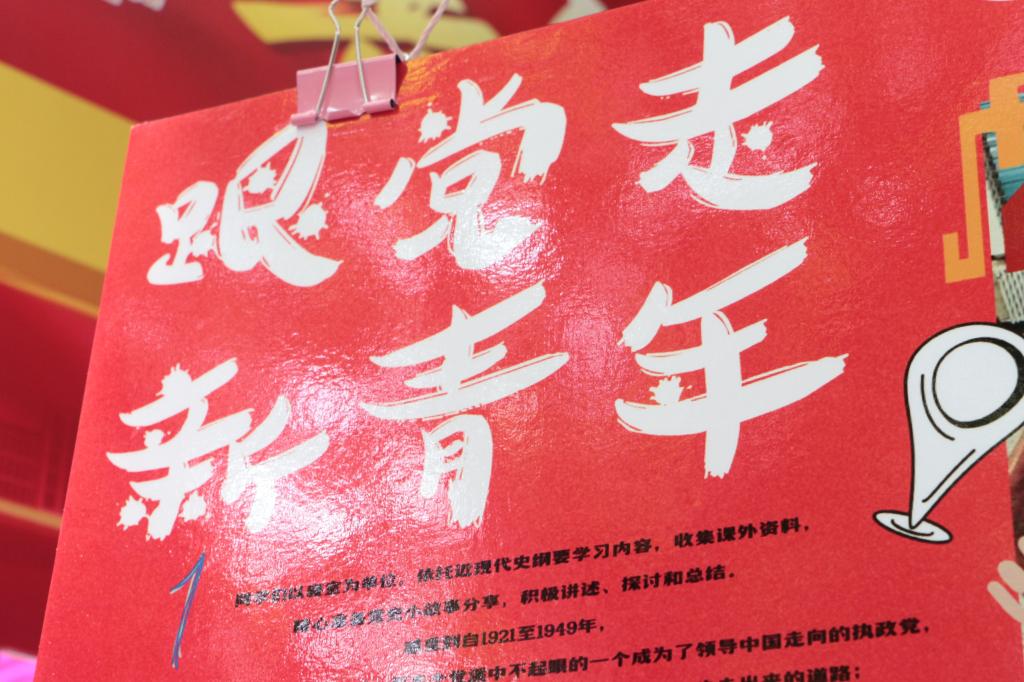 跟党走
新青年
1
同学们以寝室为单位，依托近现代史纲要学习内容，收集课外资料，
党史小故事分享，积极讲述、探讨和总结。
感受到自1921至1949年，
中不起眼的一个成为了领导中国走向的执政党，
走出来的道路；